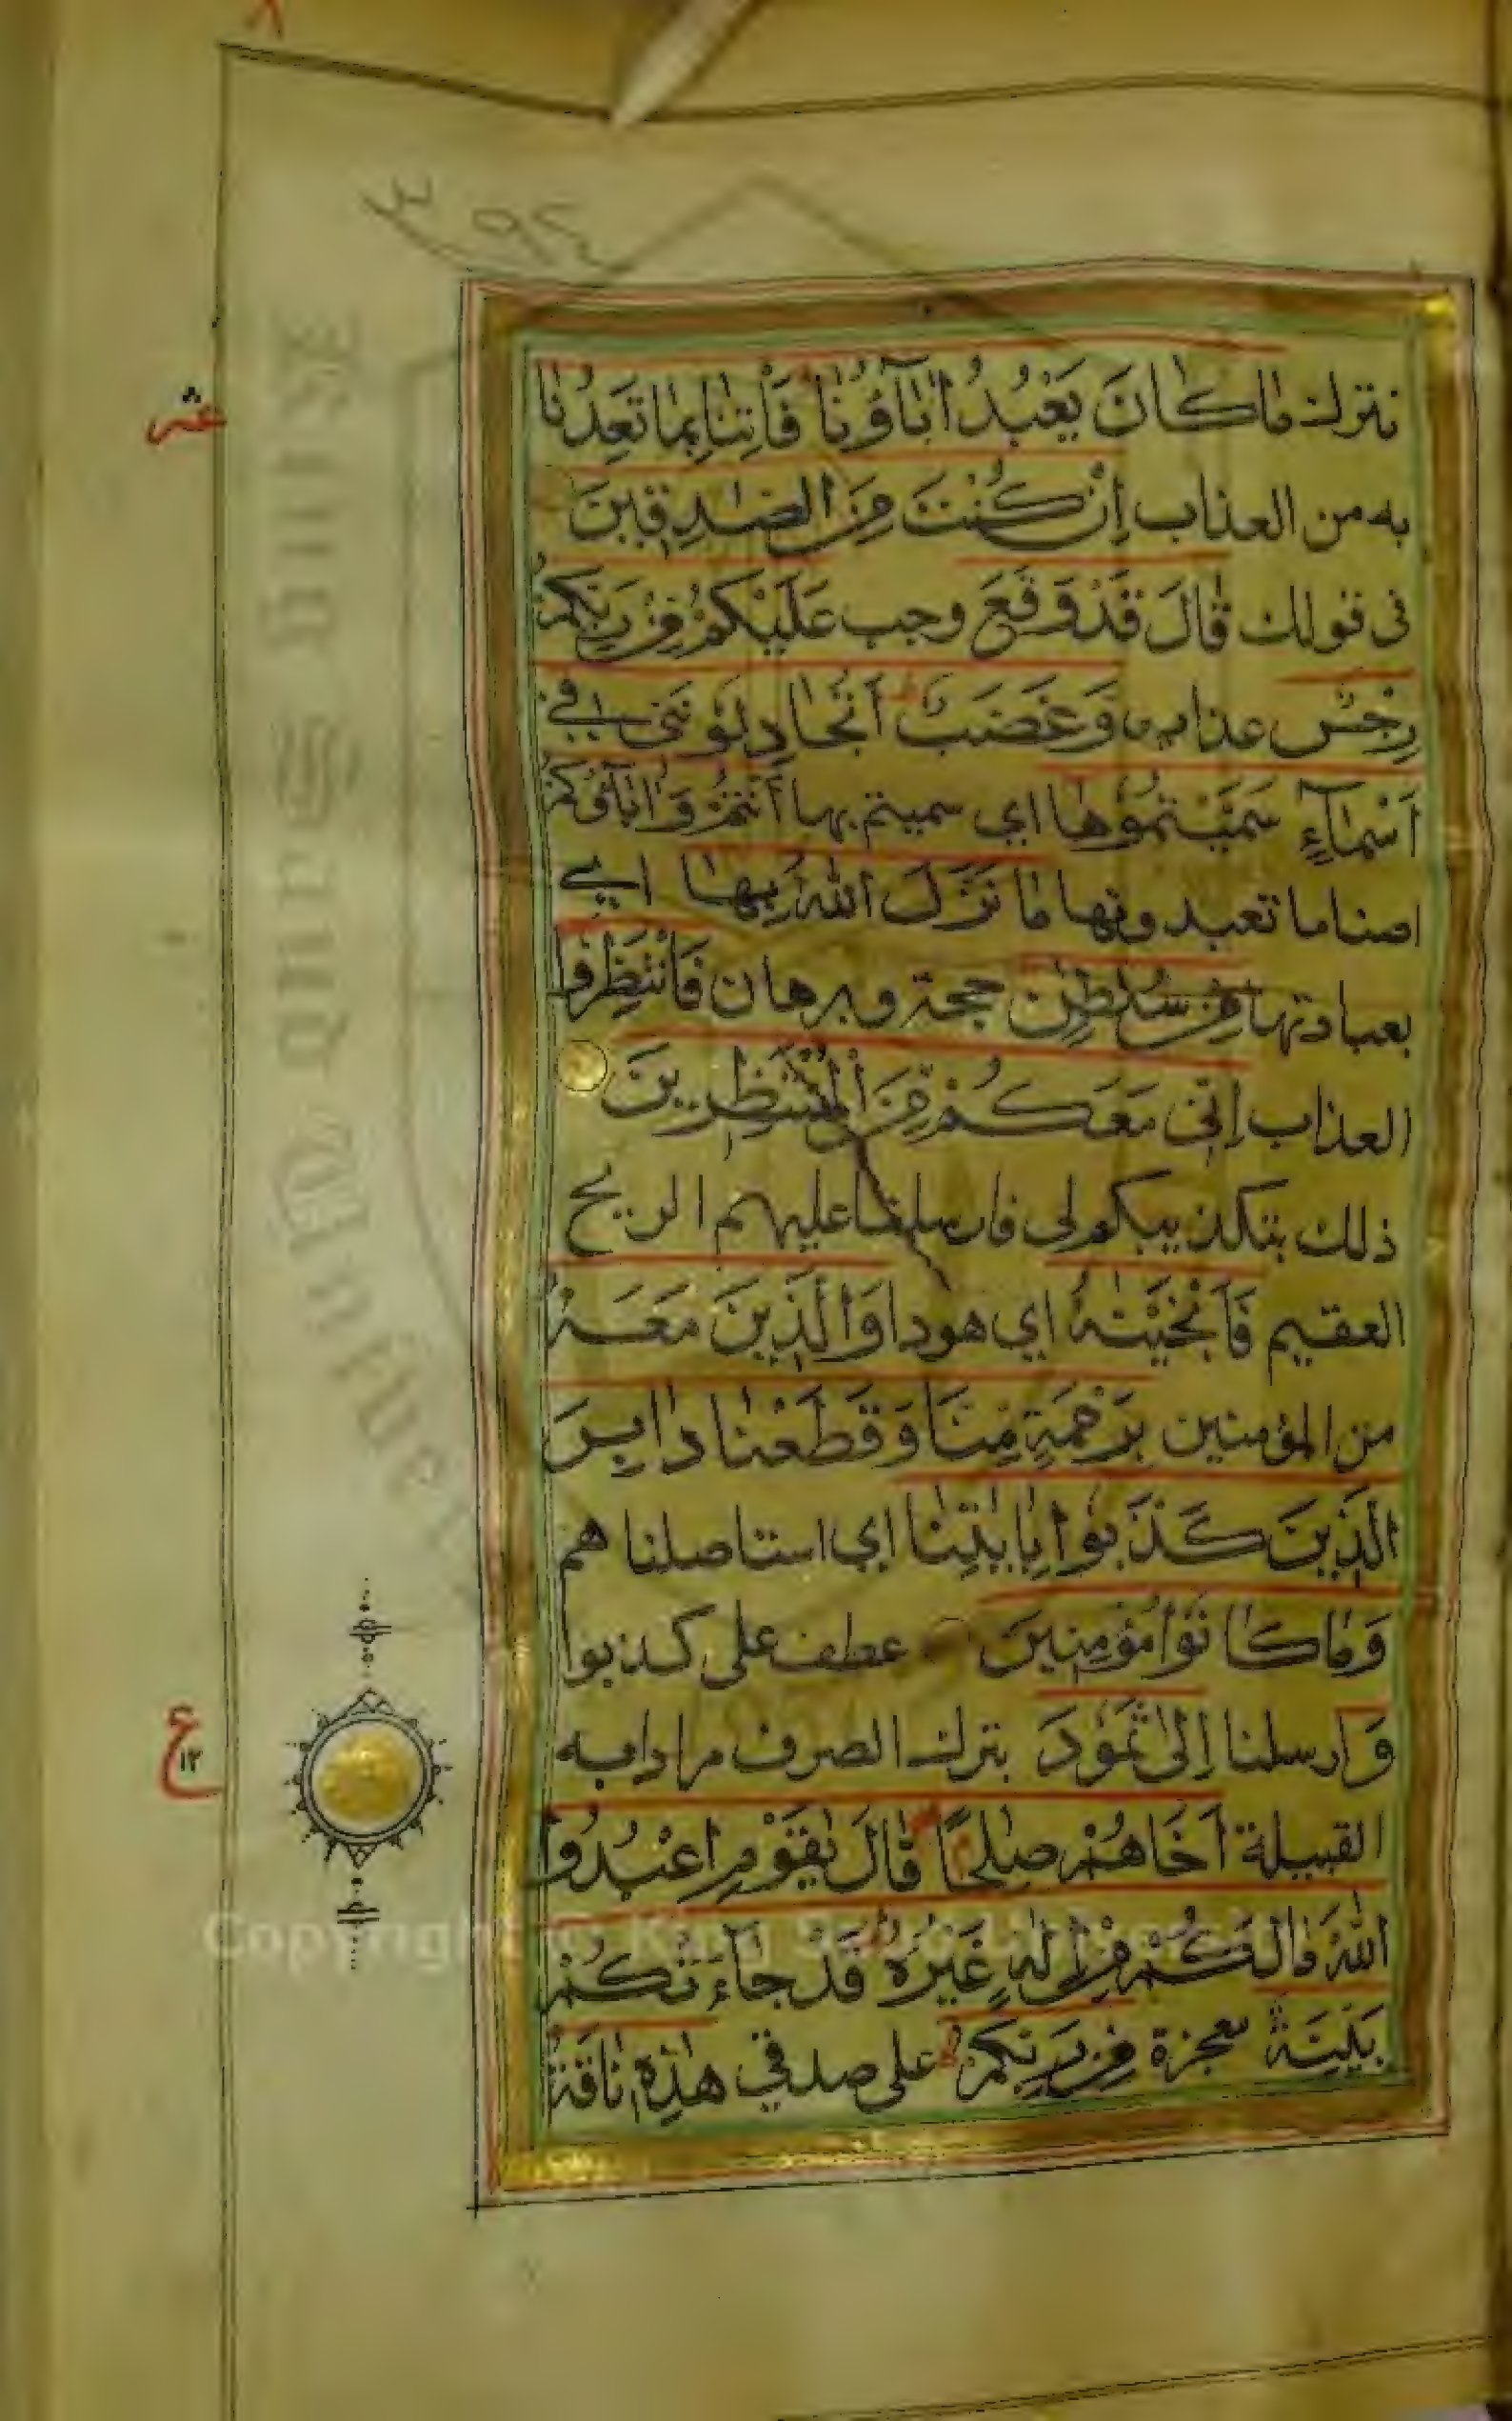 ٣٩٤
نترك ما كَانَ يَعْبُدُ اٰبَآؤُنَا فَأْتِنَا بِمَا تَعِدُنَا
عشر
به من العذاب اِنْ كُنْتَ مِنَ الصّٰدِقِينَ
فى قولك قَالَ قَدْ وَقَعَ وجب عَلَيْكُمْ مِنْ رَبِّكُمْ
رِجْسٌ عذاب وَغَضَبٌ اَتُجَادِلُونَنِى فِي
اَسْمَآءٍ سَمَّيْتُمُوهَا اي سميتم بها اَنْتُمْ وَاٰبَآؤُكُمْ
اصناما تعبدونها مَا نَزَّلَ اللّٰهُ بِهَا اي
بعبادتها مِنْ سُلْطٰنٍ حجة وبرهان فَانْتَظِرُوا
العذاب اِنِّى مَعَكُمْ مِنَ الْمُنْتَظِرِينَ
ذلك بتكذيبكم لى فارسلنا عليهم الريح
العقيم فَاَنْجَيْنٰهُ اي هودا وَالَّذِينَ مَعَهُ
من المؤمنين بِرَحْمَةٍ مِنَّا وَقَطَعْنَا دَابِرَ
الَّذِينَ كَذَّبُوا بِاٰيٰتِنَا اي استاصلناهم
وَمَا كَانُوا مُؤْمِنِينَ عطف على كذبوا
وَارسلنا اِلٰى ثَمُودَ بترك الصرف مرادا به
ع
١٢
القبيلة اَخَاهُمْ صٰلِحًا قَالَ يٰقَوْمِ اعْبُدُوا
اللّٰهَ مَا لَكُمْ مِنْ اِلٰهٍ غَيْرُهُ قَدْ جَآءَتْكُمْ
بَيِّنَةٌ معجزة مِنْ رَبِّكُمْ على صدقي هٰذِهِ نَاقَةُ